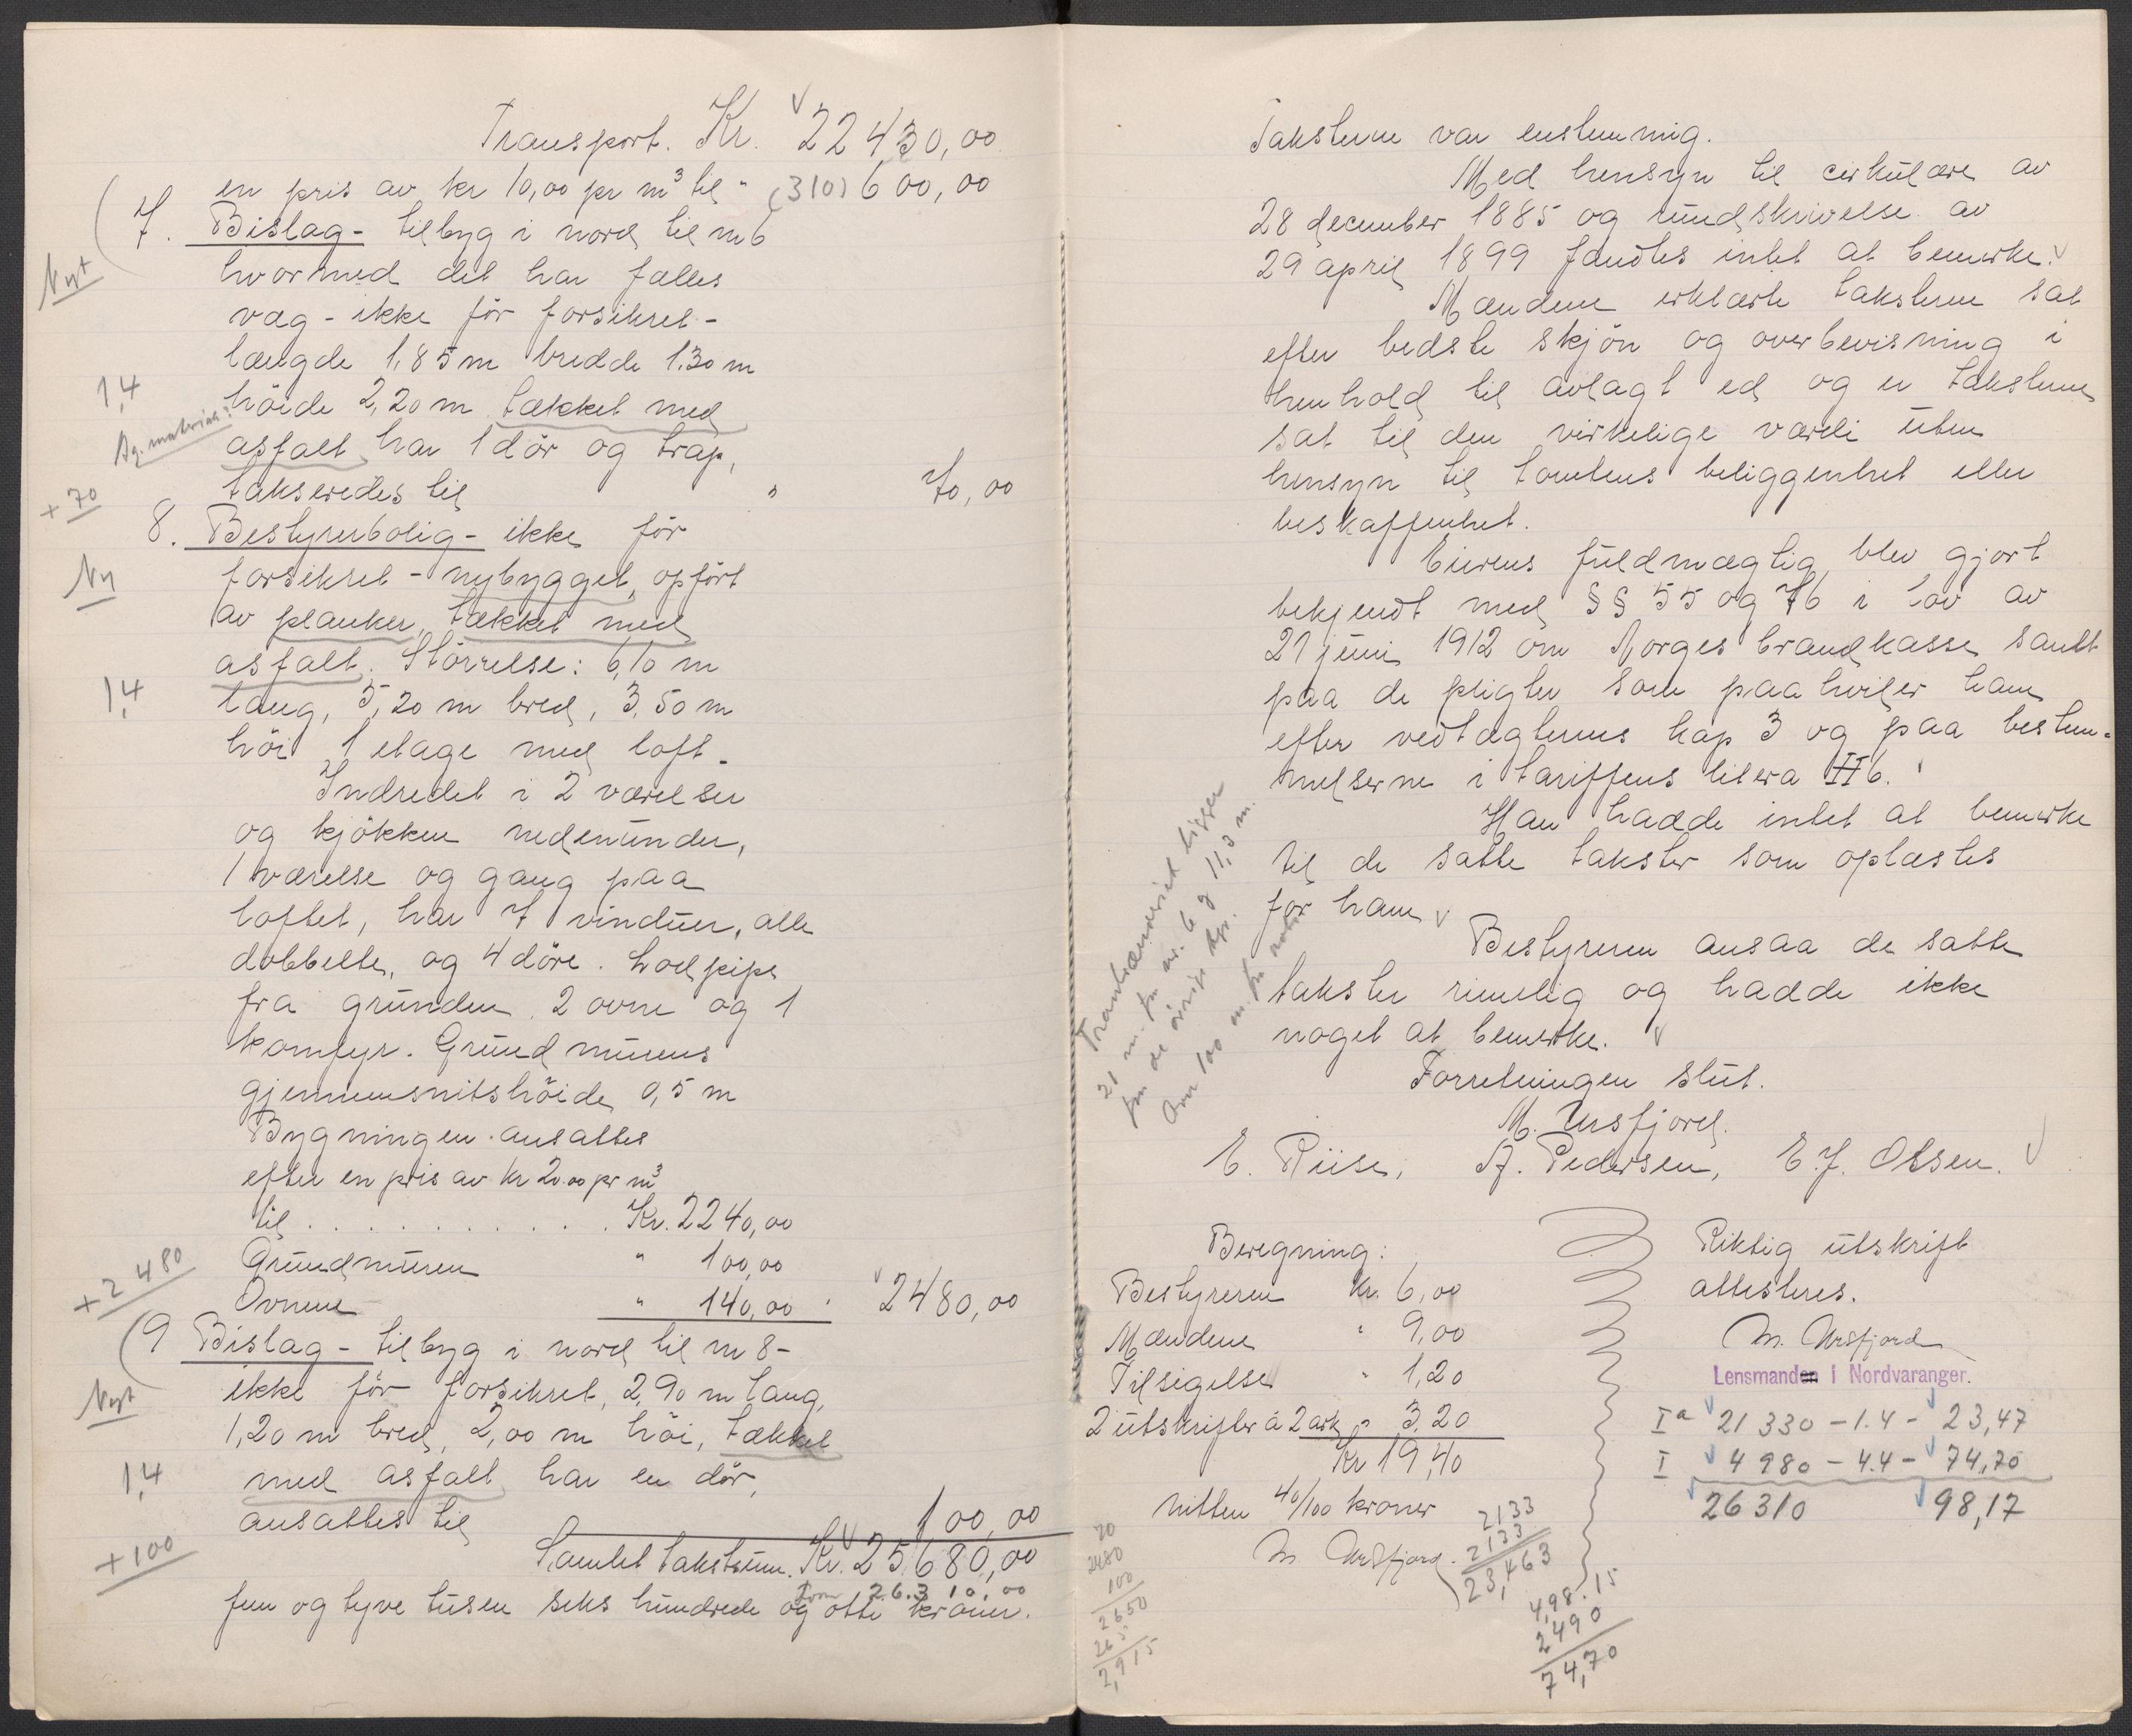 Transport. Kr. 22430,00
en pris av kr 10,00 pr m³ til " (310) 600,00
7. Bislag - tilbyg i nord til nr 6
Nyt
hvormed det har fælles
væg - ikke för forsikret -
længde 1,85 m bredde 1.30 m
1,4
höide 2,20 m tækket med
asfalt, har 1 dör og trap,
takseredes til " 70,00
+ 70
8. Bestyrerbolig - ikke för
Ny
forsikret - nybygget, opfört
av planker, tækket med
asfalt. Störrelse: 6,10 m
1,4
lang, 5,20 m bred, 3,50 m
höi 1 etage med loft.
Indredet i 2 værelser
og kjökken nedenunder,
1 værelse og gang paa
loftet, har 7 vinduer, alle
dobbelte, og 4 döre. Lodpipe
fra grunden 2 ovne og 1
komfyr. Grundmurens
gjennemsnitshöide 0,5 m
Bygningen ansattes
efter en pris av kr 20.00 pr m³
til . . . . . . . . . . . Kr. 2240,00
Grundmuren " 100,00
Ovnene " 140,00 " 2480,00
+ 2 480
9 Bislag - tilbyg i nord til nr 8 -
Nyt
ikke för forsikret, 2,90 m lang,
1,20 m bred, 2,00 m höi, tækket
1,4
med asfalt, har en dör,
ansattes til 100,00
+ 100
Samlet takstsum. Kr. 25680,00
26.310,00
fem og tyve tusen seks hundrede og otti kroner.
Taksterne var enstemmig.
Med hensyn til cirkulære av
28 december 1885 og rundskrivelse av
29 april 1899 fandtes intet at bemerke.
Mændene erklærte taksterne sat
efter bedste skjön og overbevisning i
henhold til avlagt ed og er taksterne
sat til den virkelige værdi uten
hensyn til tomtens beliggenhet eller
beskaffenhet.
Eierens fuldmægtig blev gjort
bekjendt med §§ 55 og 76 i lov av
21 juni 1912 om Norges brandkasse samt
paa de pligter som paahviler ham
efter vedtægternes kap 3 og paa bestem-
melserne i tariffens litera II b.
Han hadde intet at bemerke
til de satte takster som oplæstes
for ham
Bestyreren ansaa de satte
takster rimelig og hadde ikke
noget at bemerke.
Forretningen slut.
M. Ursfjord.
E. Riise, A. Pedersen, E. J. Olsen.
21 m. fra nr. 6 og 11,3 m.
fra de övrige
Om 100 m. fra
Beregning:
Bestyreren Kr. 6,00
Mændene " 9,00
Tilsigelse " 1,20
2 utskrifter à 2 ark " 3,20
Kr 19,40
nitten 40/100 kroner
M Ursfjord.
70
2480
100
2650
265
2,915
2133
2133
23,463
4,98.15
2490
74,70
Riktig utskrift
attesteres.
M. Ursfjord
Lensmanden i Nordvaranger.
I a 21 330 - 1.4 - 23,47
I 4 980 - 4.4 - 74,70
26310 98,17